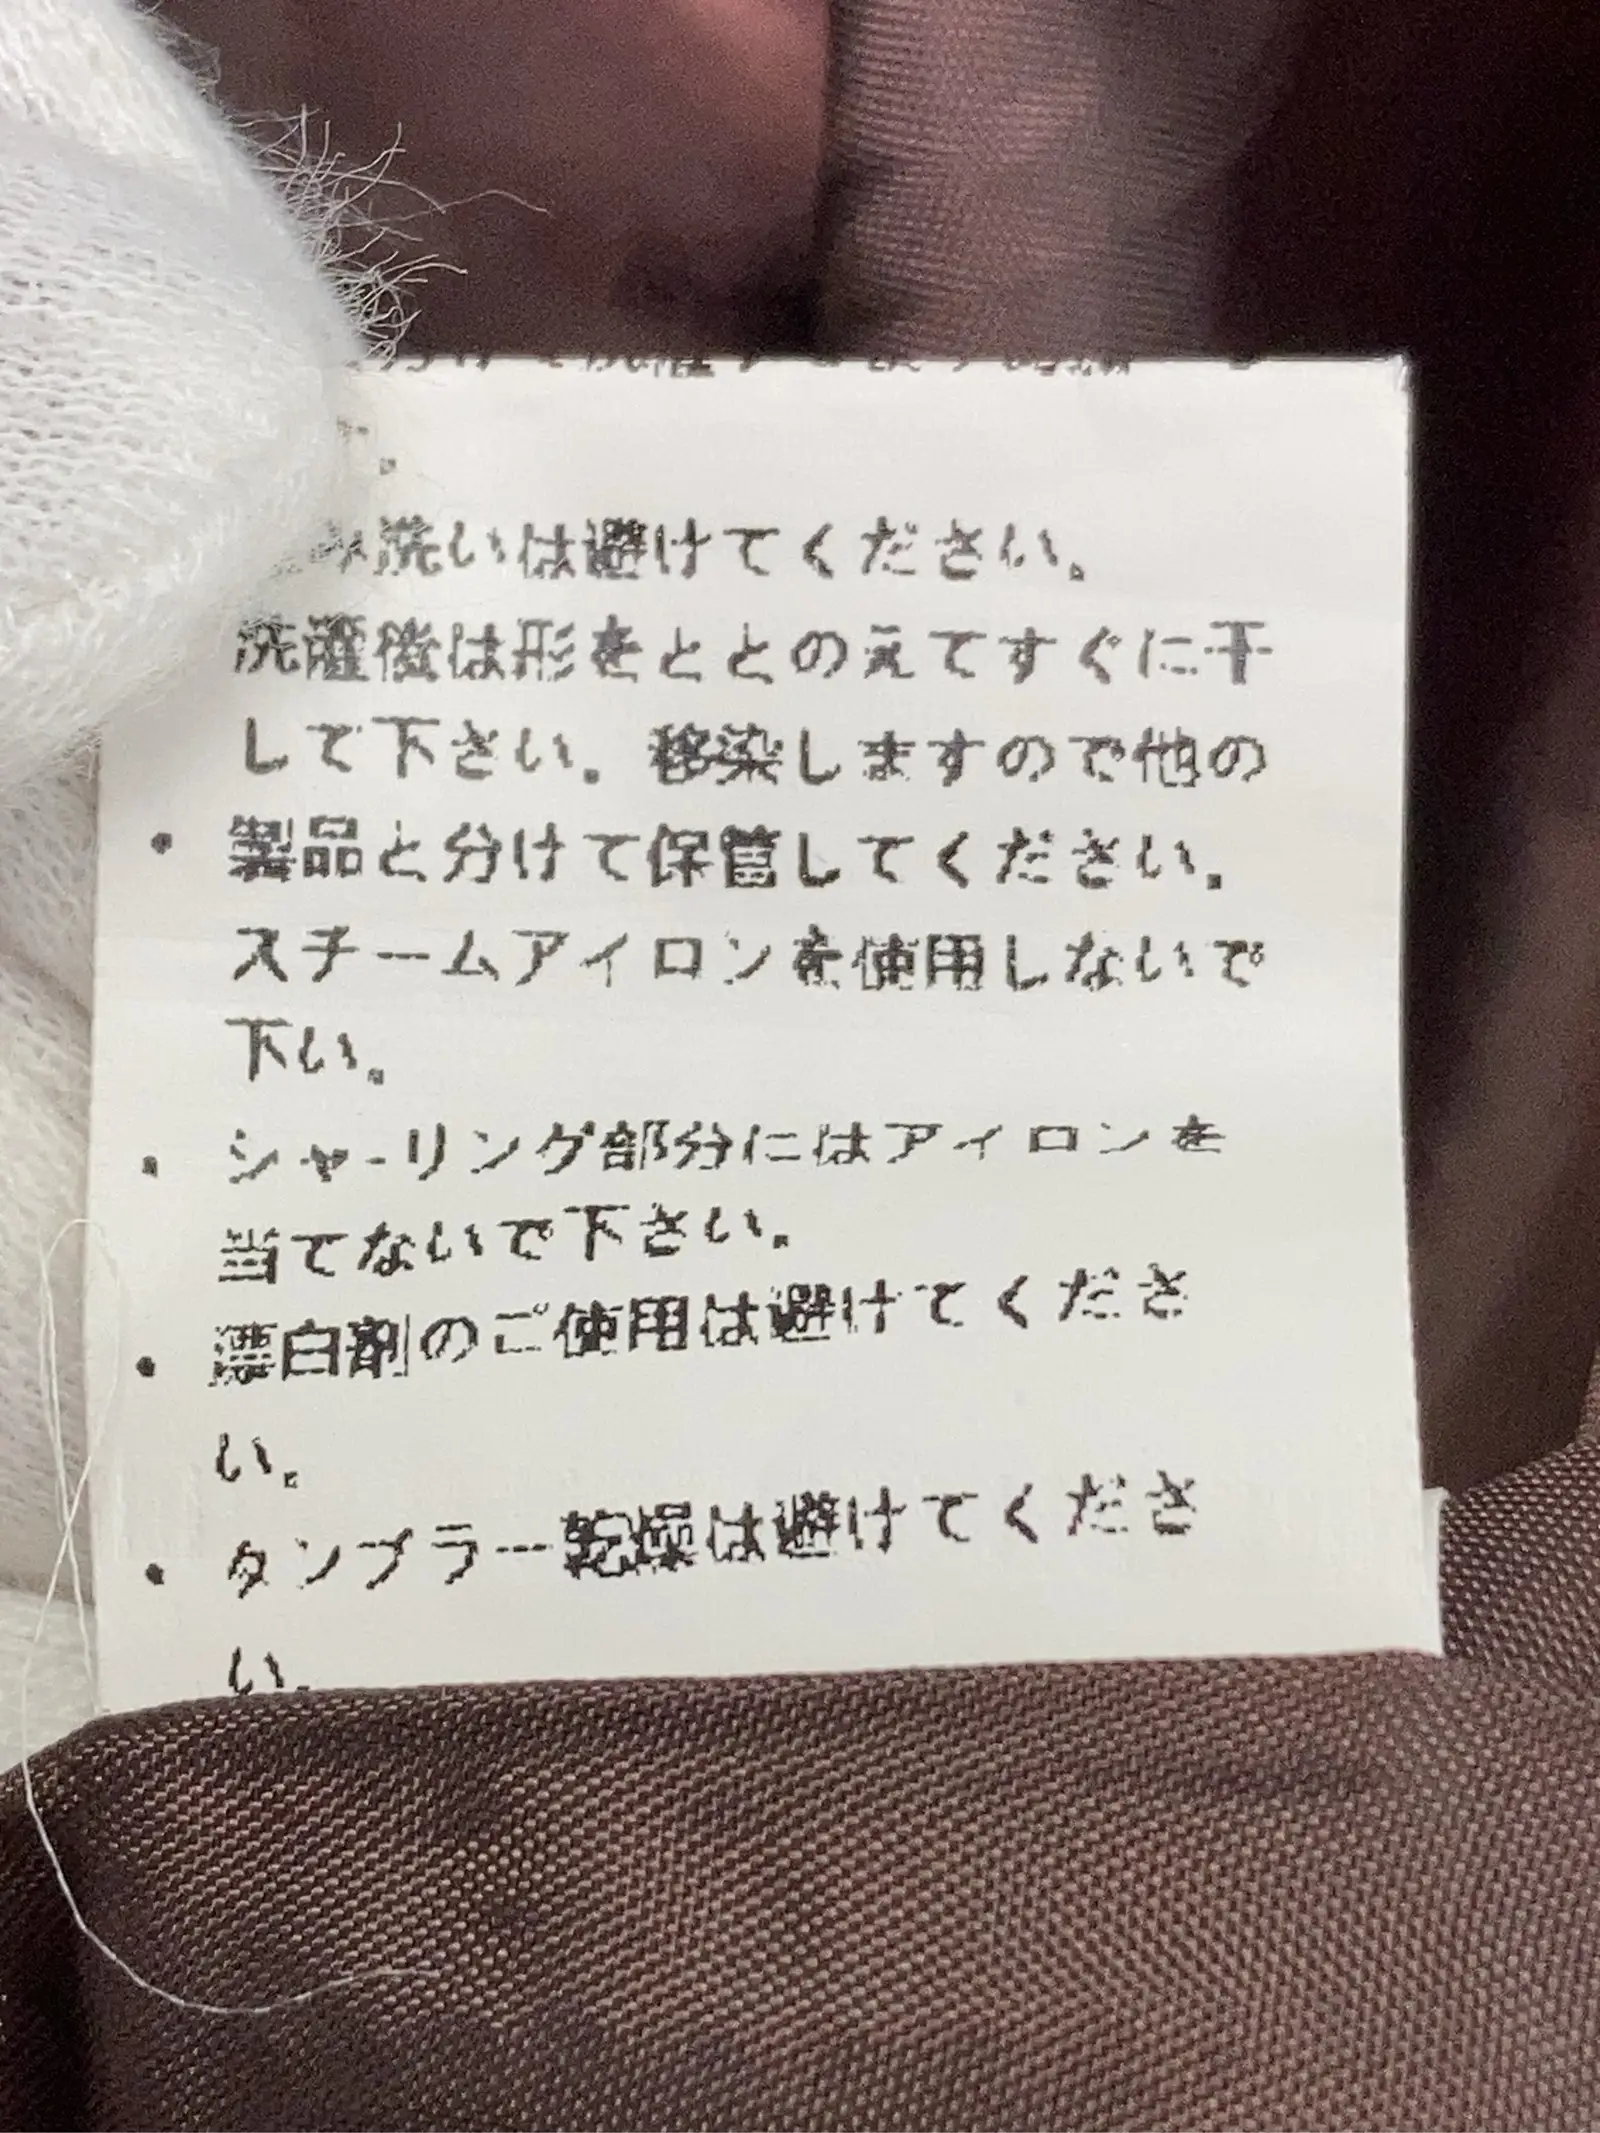 み洗いは避けてください。
洗濯後は形をととのえてすぐに干
して下さい。移染しますので他の
・製品と分けて保管してください。
スチームアイロンを使用しないで
下い。
・シャーリング部分にはアイロンを
当てないで下さい。
・漂白剤のご使用は避けてくださ
い。
・タンブラー乾燥は避けてくださ
い。